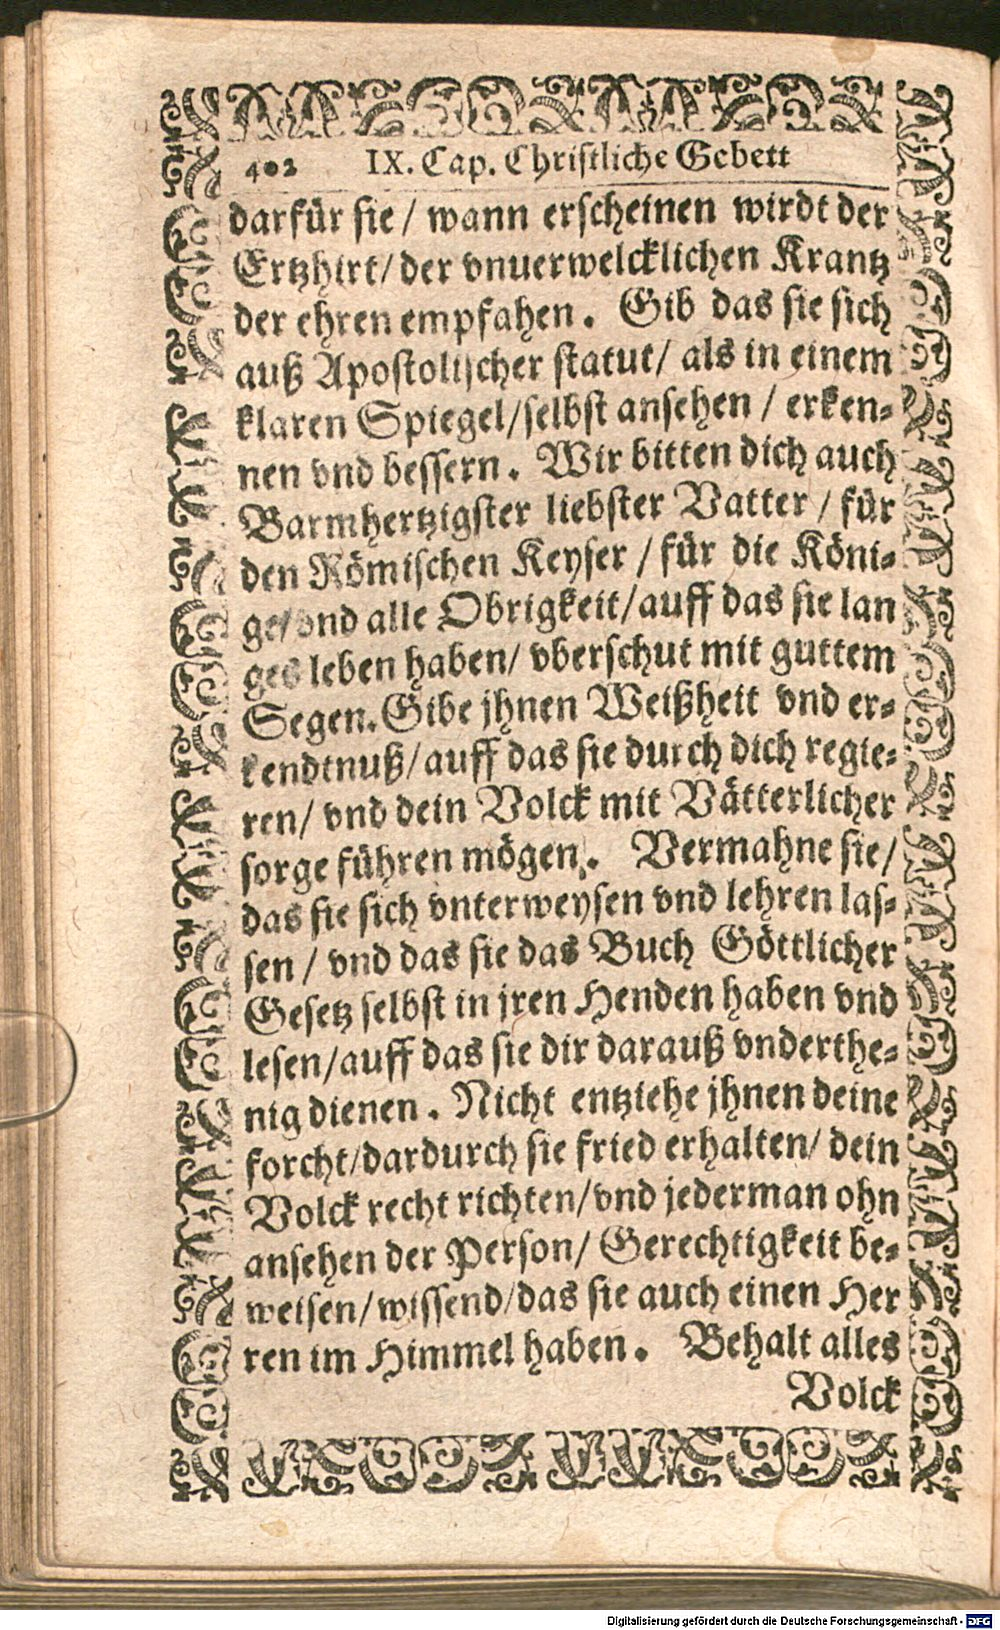 402 IX. Cap. Christliche Gebett
darfür sie / wann erscheinen wirdt der
Ertzhirt/ der vnuerwelcklichen Krantz
der ehren empfahen. Gib das sie sich
auß Apostolischer statut/ als in einem
klaren Spiegel/selbst ansehen / erken-
nen vnd bessern. Wir bitten dich auch
Barmhertzigster liebster Vatter / für
den Römischen Keyser / für die Köni-
ge/vnd alle Obrigkeit/auff das sie lan
ges leben haben/ vberschut mit guttem
Segen. Gibe jhnen Weißheit vnd er-
kendtnuß/auff das sie durch dich regie-
ren/ vnd dein Volck mit Vätterlicher
sorge führen mögen. Vermahne sie/
das sie sich vnterweysen vnd lehren las-
sen / vnd das sie das Buch Göttlicher
Gesetz selbst in jren Henden haben vnd
lesen/auff das sie dir darauß vnderthe-
nig dienen. Nicht entziehe jhnen deine
forcht/dardurch sie fried erhalten/ dein
Volck recht richten/vnd jederman ohn
ansehen der Person/ Gerechtigkeit be-
weisen/wissend/das sie auch einen Her
ren im Himmel haben. Behalt alles
Volck
Digitalisierung gefördert durch die Deutsche Forschungsgemeinschaft - DFG